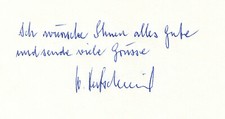 Ich wünsche Ihnen alles Gute
und sende viele Grüsse